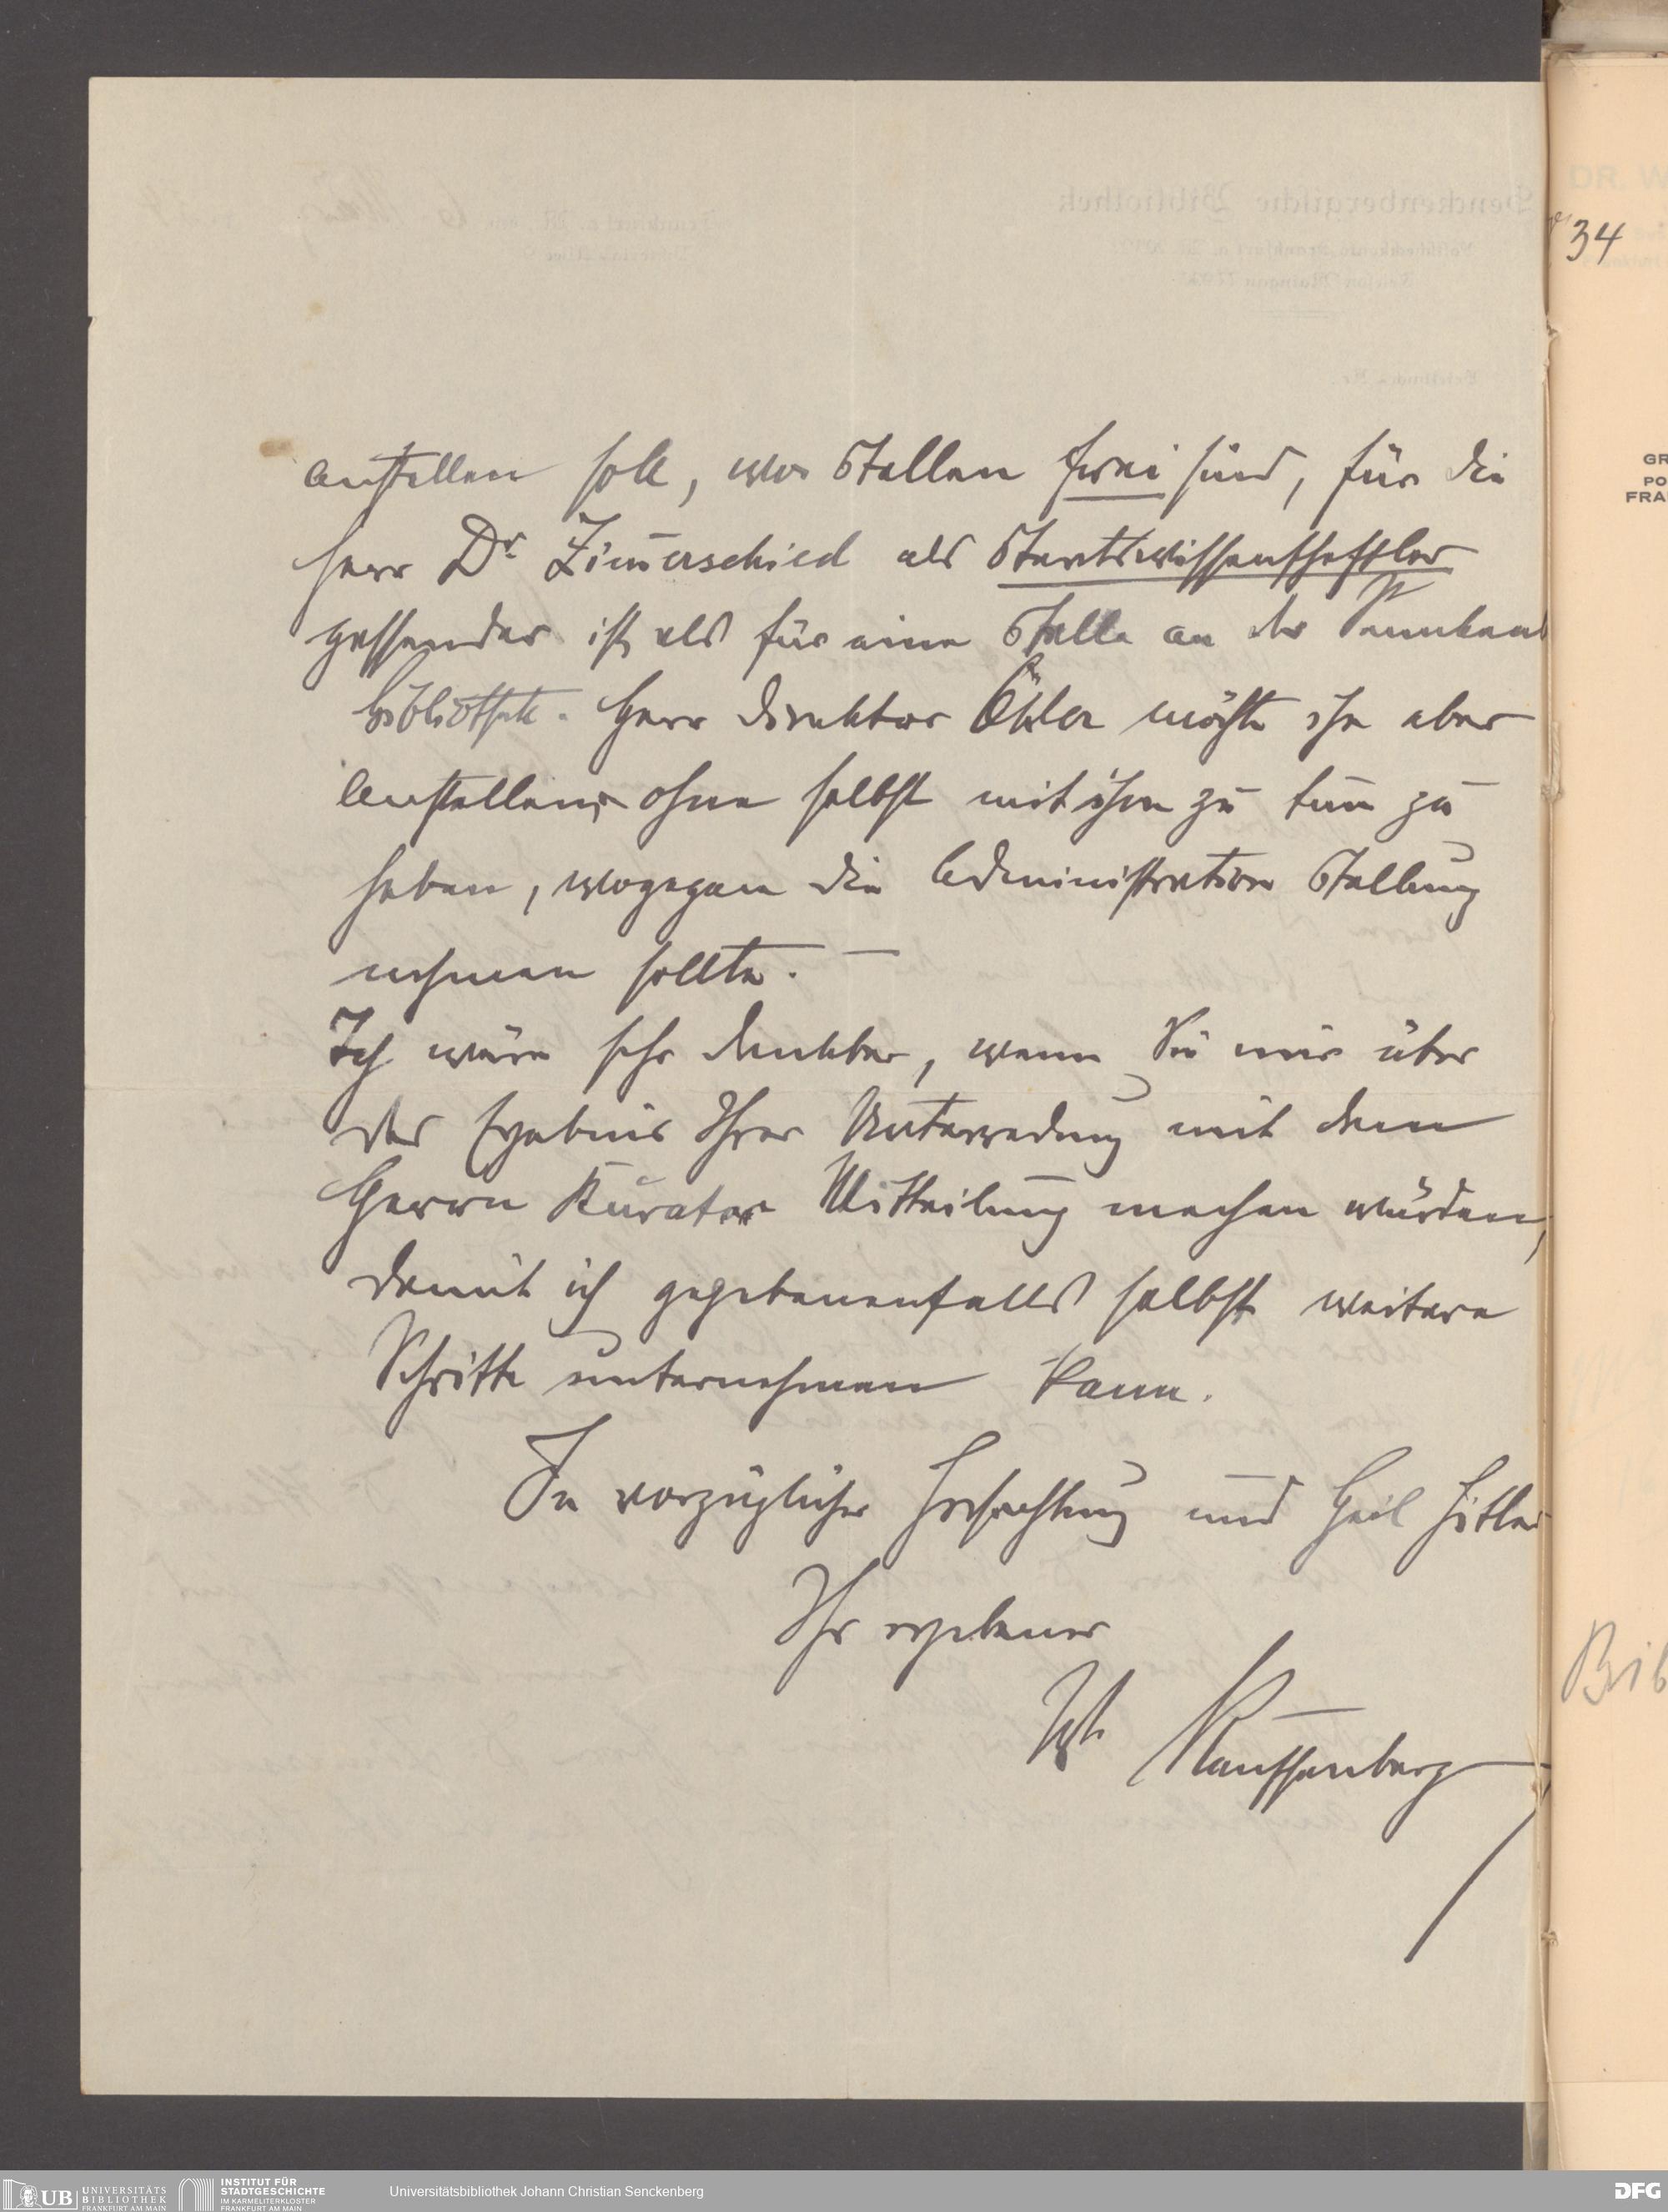 anstellen soll, wo Stellen frei sind, für die
Herr Dr Zim̄erschied als Staatswissenschaftler
passender ist als für eine Stelle an der Senckenb
bibliothek. Herr Direktor Öhler möchte ihn aber
anstellen, ohne selbst mit ihm zu tun zu
haben, wogegen die Administration Stellung
nehmen sollte. —
Ich wäre sehr dankbar, wenn Sie mir über
das Ergebnis Ihrer Unterredung mit dem
Herrn Kurator Mitteilung machen würden,
damit ich gegebenenfalls selbst weitere
Schritte unternehmen kann.
In vorzüglicher Hochachtung und Heil Hitler
Ihr ergebener
W. Rauschenberg
34
DR. W
GR
PO
FRA
Bib
Senckenbergische Bibliothek
UB UNIVERSITÄTS
BIBLIOTHEK
FRANKFURT AM MAIN
INSTITUT FÜR
STADTGESCHICHTE
IM KARMELITERKLOSTER
FRANKFURT AM MAIN
Universitätsbibliothek Johann Christian Senckenberg
DFG